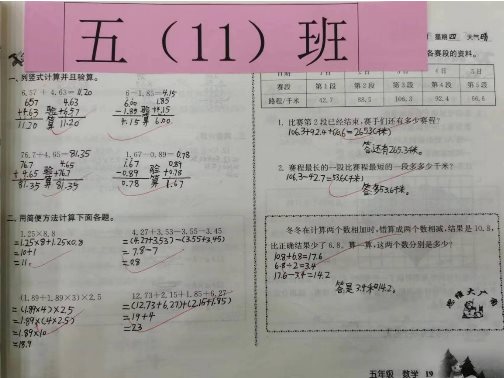 五（11）班
星期四 天气晴
各赛段的资料。
一、列竖式计算并且验算。
6.57 + 4.63=11.20
6-1.85=4.15
657 4.63 6.00 1.85
+4.63 验 +6.57 -1.85 验 +4.15
11.20 算 11.20 4.15 算 6.00
76.7+4.65=81.35
1.67-0.89=0.78
76.7 4.65 1.67 0.89
+4.65 验 +76.7 -0.89 验 +0.78
81.35 算 81.35 0.78 算 1.67
二、用简便方法计算下面各题。
1.25×8.8
=1.25×8+1.25×0.8
=10+1
=11
4.27+3.53-3.55-3.45
=(4.27+3.53)-(3.55+3.45)
=7.8-7
=0.8
(1.89+1.89×3)×2.5
=(1.89×4)×2.5
=1.89×(4×2.5)
=1.89×10
=18.9
12.73+2.15+1.85+6.27
=(12.73+6.27)+(2.15+1.85)
=19+4
=23
日期 1日 2日 3日 4日 5日
赛段 第1段 第2段 第3段 第4段 第5段
路程/千米 42.7 68.5 106.3 92.4 66.6
1. 比赛第2段已经结束，赛手们还有多少赛程？
106.3+92.4+66.6=265.3(千米)
答:还有265.3千米。
2. 赛程最长的一段比赛程最短的一段多多少千米？
106.3-42.7=63.6(千米)
答:多63.6千米。
冬冬在计算两个数相加时，错算成两个数相减，结果是10.8，
比正确结果少了6.8。算一算，这两个数分别是多少？
10.8+6.8=17.6
6.8÷2=3.4
17.6-3.4=14.2
答:是3.4和14.2。
五年级 数学 19